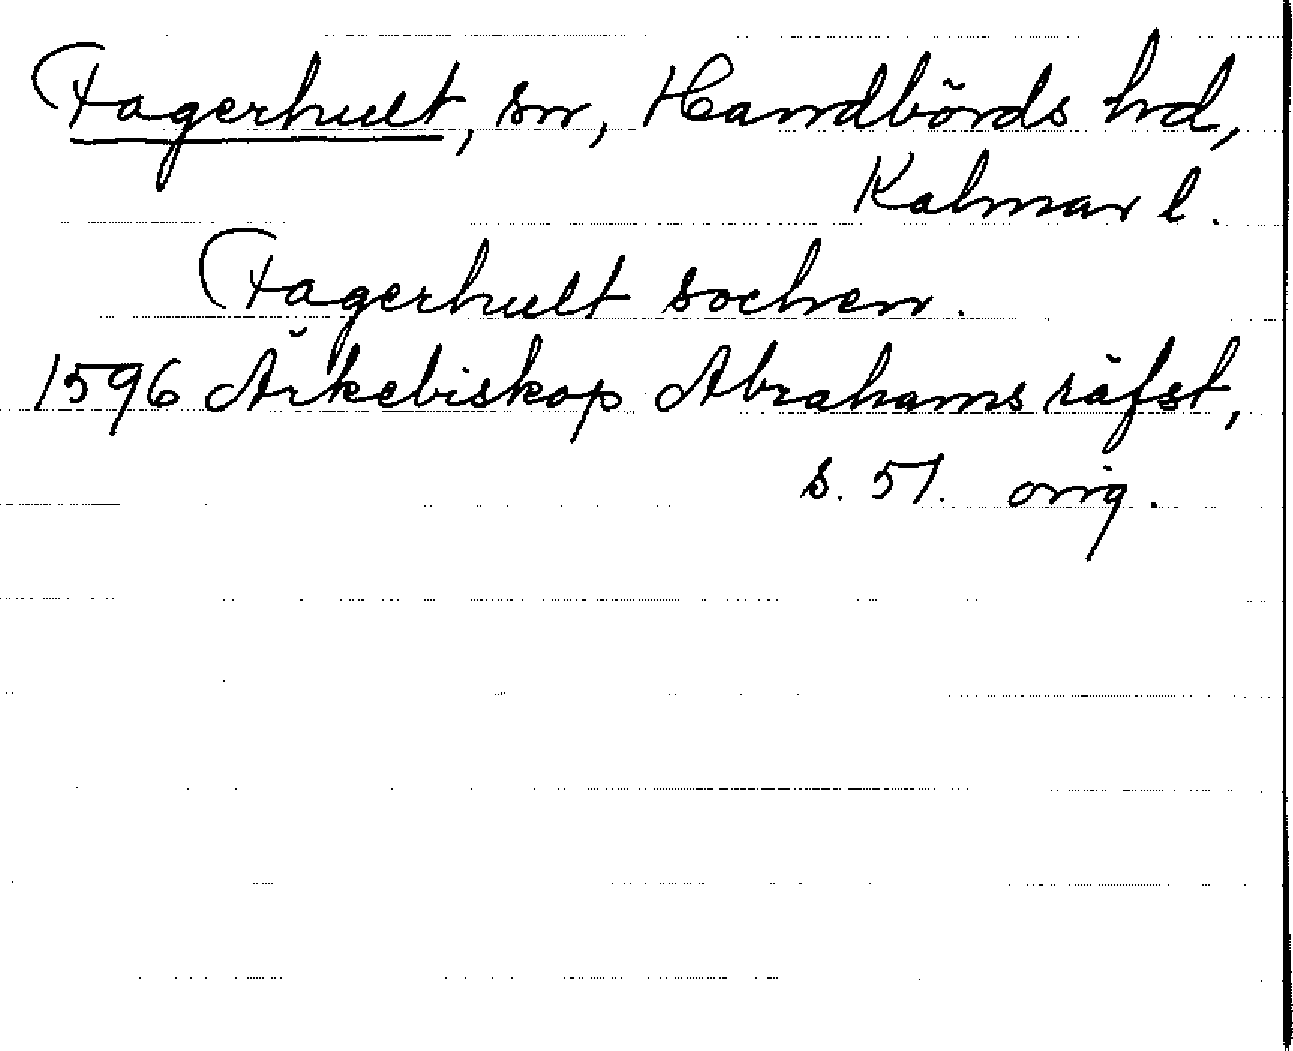 Fagerhult, sn, Handbörds hd,
Kalmar l.
Fagerhult sochen.
1596 Ärkebiskop Abrahams räfst,
s. 51. orig.